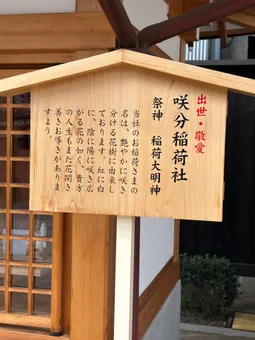 出世・敬愛
咲分稲荷社
祭神　稲荷大明神
当社のお稲荷さまの
名は、艶やかに咲き
分ける花樹に由来し
ております。紅に白
に、陰に陽に咲き広
がる花の如く、貴方
の人生もまた花開き
善きお導きがありま
すよう。